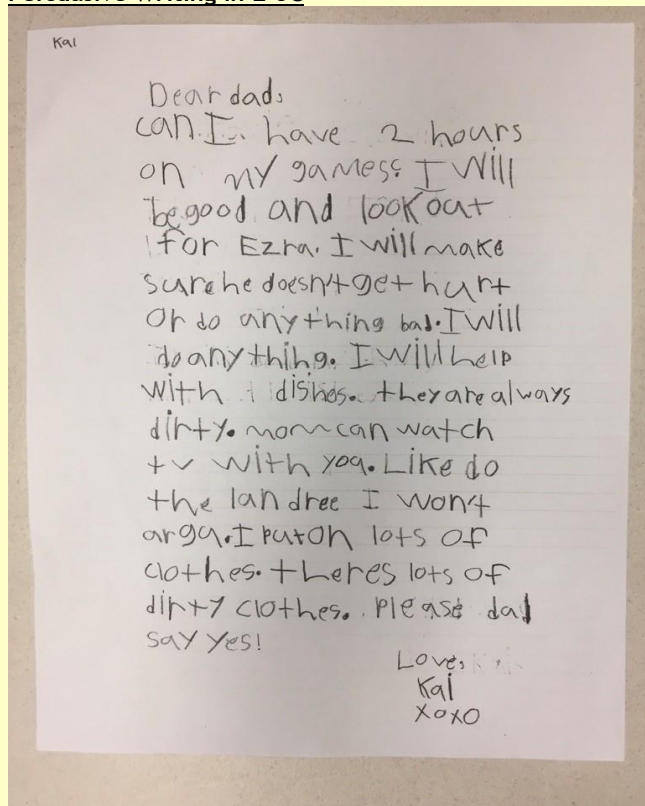 Kai
Dear dad,
can I. have 2 hours
on my games? I will
be good and look out
for Ezra. I will make
sure he doesn't get hurt
or do anything bad. I will
do anything. I will help
with dishes. they are always
dirty. mom can watch
tv with you. Like do
the landree I won't
argu. I put on lots of
clothes. theres lots of
dirty clothes. Please dad
say yes!
Love,
Kai
xoxo